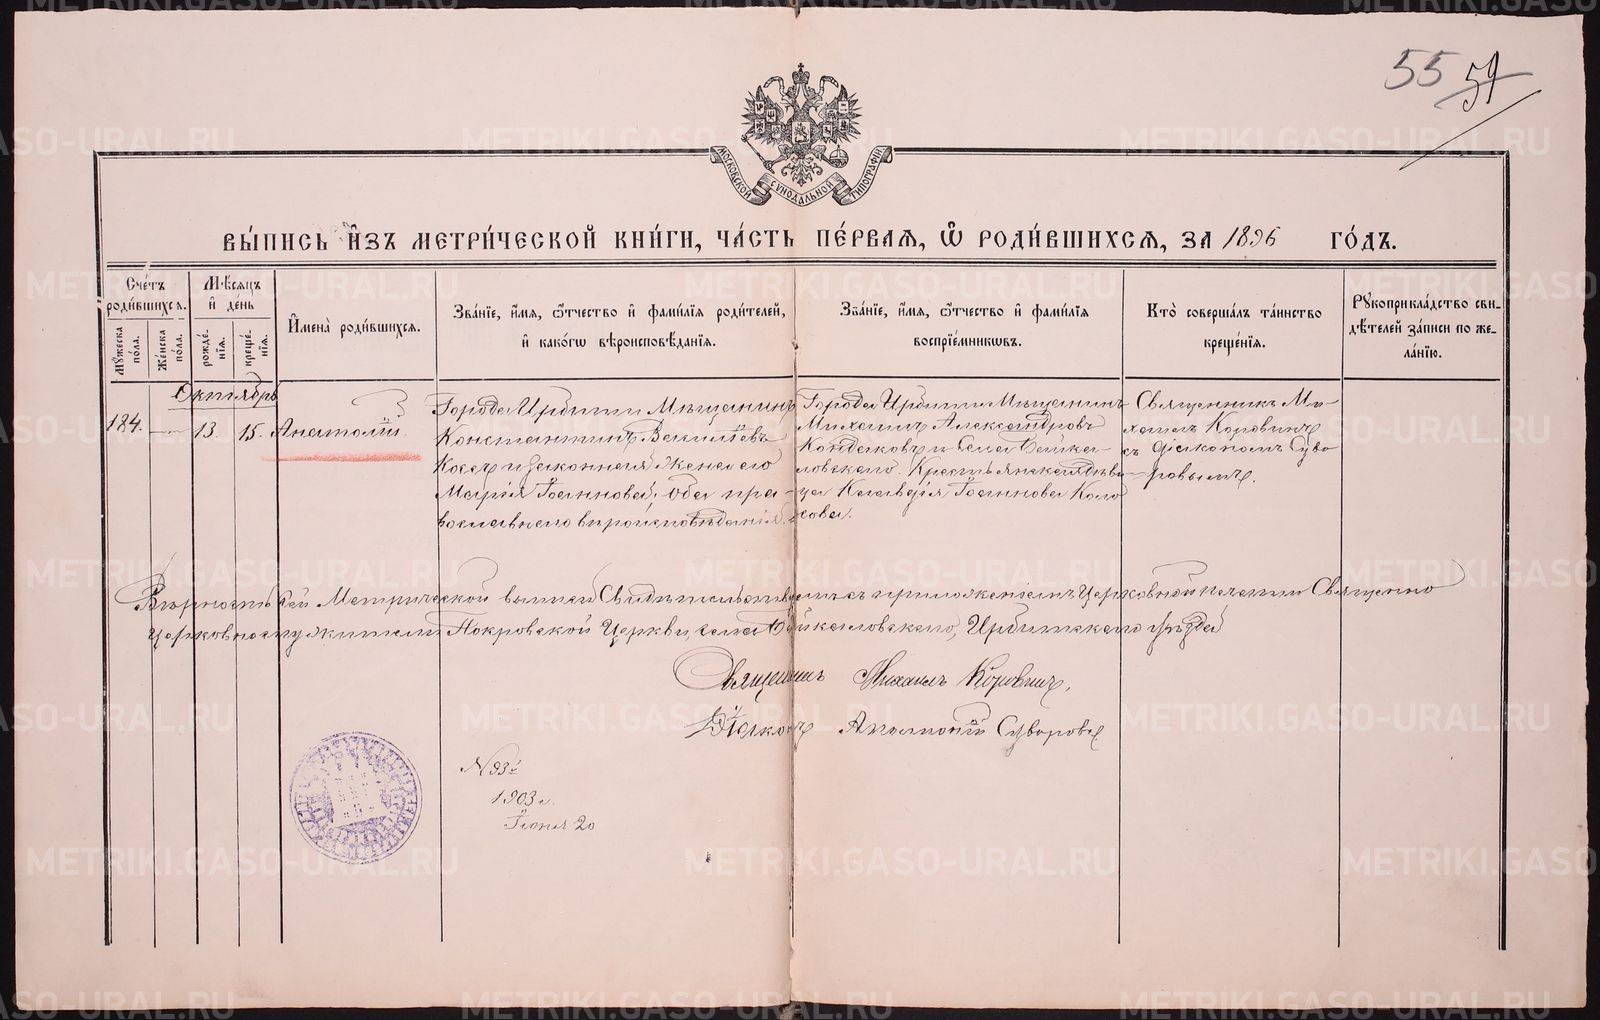 55 59
МОСКОВСКОЙ СѴНОДАЛЬНОЙ ТИПОГРАФІИ
ВЫ́ПИСЬ И҆ЗЪ МЕТРИ́ЧЕСКОЙ КНИ́ГИ, ЧА́СТЬ ПЕ́РВАѦ, Ѽ РОДИ́ВШИХСѦ, ЗА 1896 ГО́ДЪ.
Сче́тъ роди́вшихсѧ.
Мꙋ́жеска по́ла.
Же́нска по́ла.
Мѣ́сѧцъ и҆ де́нь
рожде́-нїѧ.
креще́-нїѧ.
И҆мена̀ роди́вшихсѧ.
Зва́нїе, и҆́мѧ, ѻ҆́тчество и҆ фами́лїѧ роди́телей,
и҆ како́гѡ вѣроисповѣ́данїѧ.
Зва́нїе, и҆́мѧ, ѻ҆́тчество и҆ фами́лїѧ
воспрїе́мникѡвъ.
Кто̀ соверша́лъ та́инство
креще́нїѧ.
Рꙋкоприкла́дство сви-
дѣ́телей за́писи по же-
ла́нїю.
Октябрь
184. 13. 15. Анатолій
Города Ирбити Мѣщанинъ
Константинъ Васильевъ
и законная жена его
Марія Іоаннова, оба пра-
вославнаго вѣроисповѣданія.
Города Ирбити Мѣщанинъ
Михаилъ Александровъ
Кондаковъ и села Байка-
ловскаго Крестьянская дѣви-
ца Клавдія Іоаннова Коло
сова.
Священникъ Ми-
хаилъ Коровинъ
съ діакономъ Суво
ровымъ.
Вѣрность сей Метрической выписи Свидѣтельствуемъ съ приложеніемъ Церковной печати Священно
Церковнослужители Покровской Церкви, села Байкаловскаго, Ирбитскаго уѣзда
Священникъ Михаилъ Коровинъ,
Діаконъ Суворовъ
N 93
1903 г.
Іюня 20
METRIKI.GASO-URAL.RU